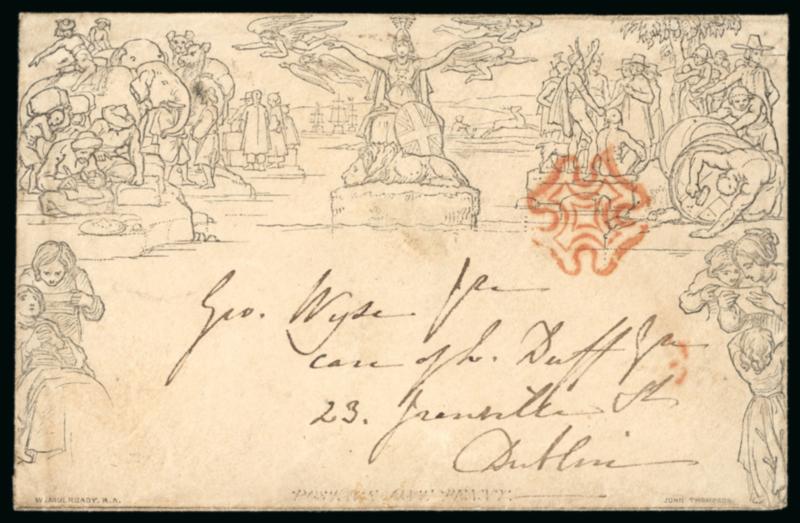 Geo. Wyse Jr.
care of L. Duff Jr.
23. Grenville St
Dublin
W. MULREADY. R.A.
JOHN THOMPSON.
POSTAGE ONE PENNY.